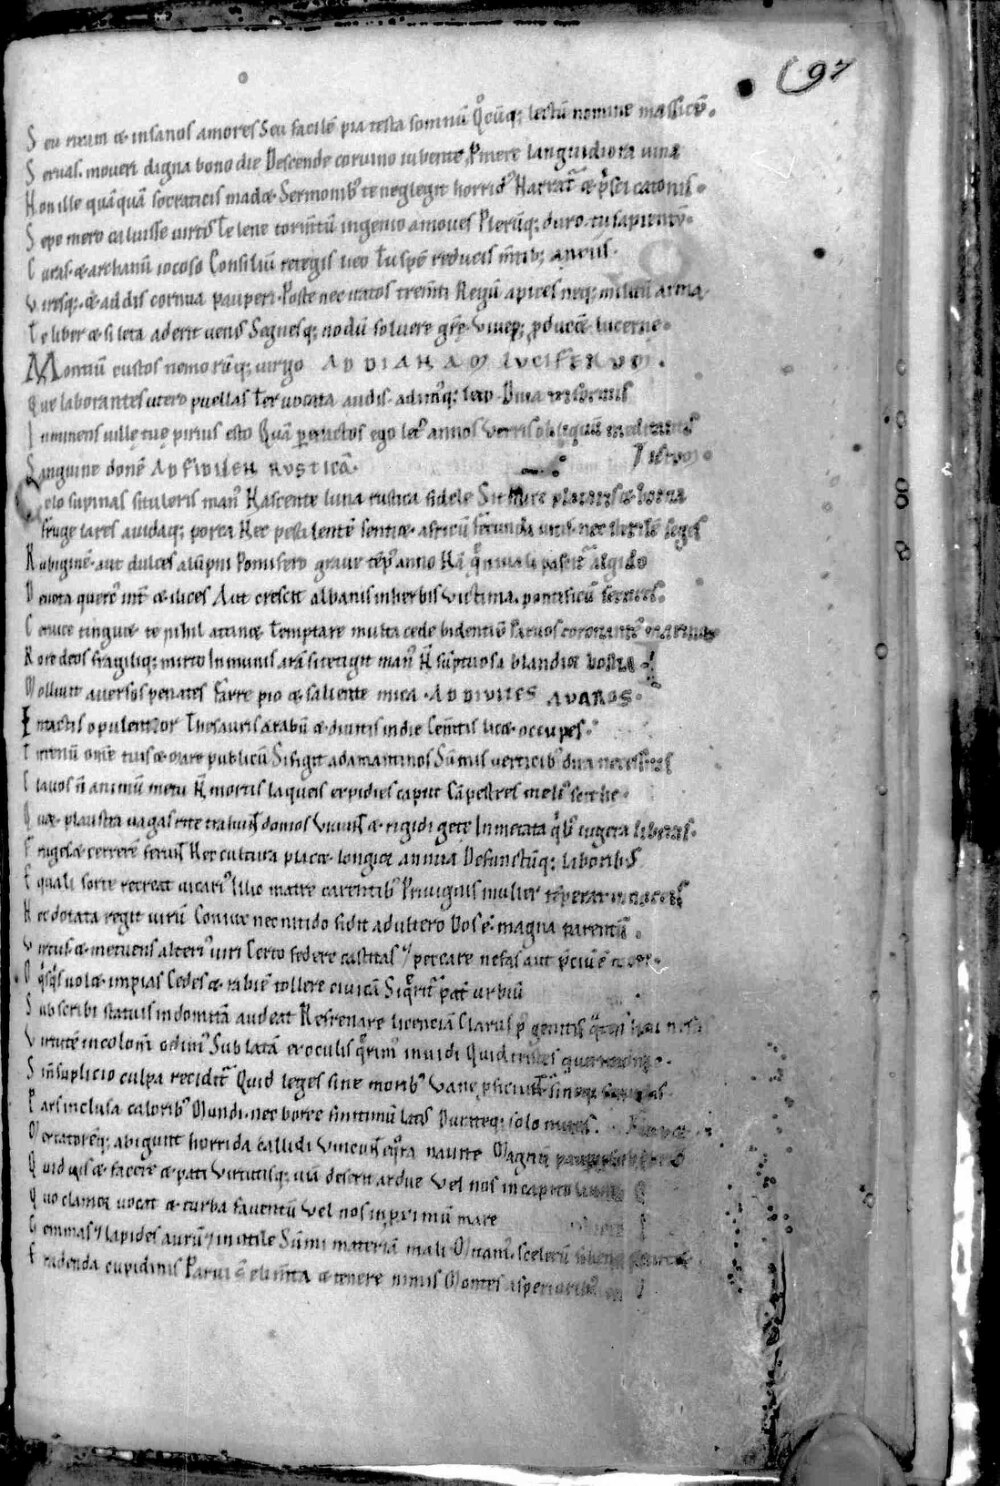 97
Seu rixam & insanos amores Seu facilē pia testa somnū Q͛cūq; lectū nomine massicū.
Seruas. moueri digna bono die Descende coruino iubente Pmere languidiora uina
Non ille quāquā socraticis mad& Sermonib; te neglegit horrid͛ Narrat͛ & p̄sci catonis.
Sepe mero caluisse uirt͛ Te lene tormtū ingenio amoues Plerūq; duro. tu sapientū.
Curas. & archanū iocoso Consiliū retegis lieo Tu spē reducis m̄tib; anxiis.
Viresq;. & addis cornua pauperi. Poste nec iratos trem̄ti Regū apices neq; militū arma.
Te liber & si leta aderit uen͛ Segnesq; nodū soluere gr̄e. Viueq; pducē lucerne.
Montiū custos nemorūq; uirgo AD DIANAM LUCIFERUM.
Que laborantes utero puellas Ter uocata audis. adimq; leto. Diua triformis
Inminens uille tue pinus esto Quā p exactos ego let͛ annos Verris obliquū meditantis
Sanguine donē AD FIDILEN RUSTICĀ. Ictum.
Celo supinas si tuleris man͛ Nascente luna rustica fidele Si ture placaris & horna
Fruge lares auidaq; porca Nec pestilentē senti& africū fecunda uitis. nec sterilē seges
Rubiginē. aut dulces alūpni Pomifero graue tēp͛ anno Nā q͛ niuali pascit͛ algido
Deuota querc͛ int͛ & ilices Aut crescit albanis in herbis Victima. pontificū secures.
Ceruice tinguæ te nihil attin& Temptare multa cede bidentiū Paruos coronantē marino
Rore deos fragiliq; mirto Inmunis arā si tetigit man͛ N̄ sūptuosa blandior hostia
Molliuit auersos penates Farre pio & saliente mica. AD DIVITES AVAROS.
Intactis opulentior Thesauris arabū & diuitis indie Cem̄tis lic& occupes.
Tirrenū omē tuis & mare publicū Si figit adamantinos Sūmis uerticib͛ dira necessitas
Clauos n̄ animū metu N̄ mortis laqueis expidies caput Cāpestres meli͛ scithe.
Quor. plaustra uagas rite trahunt domos Viuunt & rigidi gete Inmetata q͛b͛ iugera liberas.
Fruges& cererē ferunt Nec cultura plac& longior annua Defunctūq; laborib͛
Equali sorte recreat uicari͛ Illic matre carentib͛ Priuignis mulier tēperat innocens
Nec dotata regit uirū Coniux nec nitido fidit adultero Dos ē. magna parentū.
Virtus. & metuens alteri͛ uiri Certo federe castitas Et peccare nefas aut p̄ciū ē mori.
O q͛sq͛s uol& impias Cedes & rabiē tollere ciuicā Si q͛rit͛ pat͛ urbiū
Subscribi statuis indomitā audeat Refrenare licenciā Clarus p͛ genitis
Virtutē incolom̄ odim͛ Sublatā ex oculis q͛rim͛ inuidi Quid tristes querimonie.
Si n̄ suplicio culpa recidit͛ Quid leges sine morib͛ Vane pficiunt si neq; feruidis.
Pars inclusa calorib͛ Mundi. nec boree finitimū lat͛ Durateq; solo niues.
Mercatorēq; abigunt horrida callidi Vincunt eq͛ra nauite Magnū pauperies
Quiduis & facere & pati Virtutisq; uiā deserit ardue Vel nos in capitoliū
Quo clamor uocat & turba fauentū Vel nos in proximū mare
Gemmas Et lapides aurū Et inutile Sūmi materiā mali Mittam͛. scelerū si bene
Eradenda cupidinis Praui s̄ elem̄ta & tenere nimis Mentes asperiorib͛